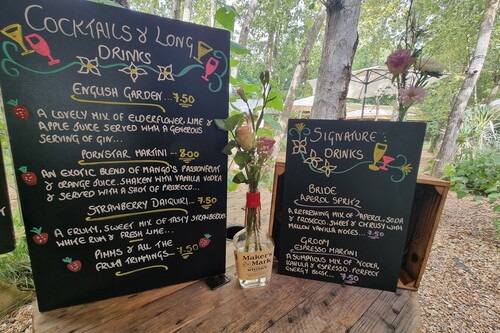 Cocktails & Long
Drinks
English Garden... 7.50
A lovely mix of elderflower, lime &
apple juice served with a generous
serving of gin...
Pornstar Martini ... 8.00
An exotic blend of mango's passionfruit
& orange juice, shaken with vanilla vodka
& served with a shot of prosecco...
Strawberry Daiquiri... 7.50
A fruity, sweet mix of tasty strawberry
white rum & fresh lime...
Pimms & all the
fruit trimmings... 7.50
Maker's
Mark
WHISKY
Signature
Drinks
Bride
Aperol Spritz
A refreshing mix of Aperol, soda
& prosecco, sweet & christy with
mellow vanilla notes... 7.50
Groom
Espresso Martini
A sumptious mix of vodka,
kahlua & espresso. Perfect
energy boost... 7.50